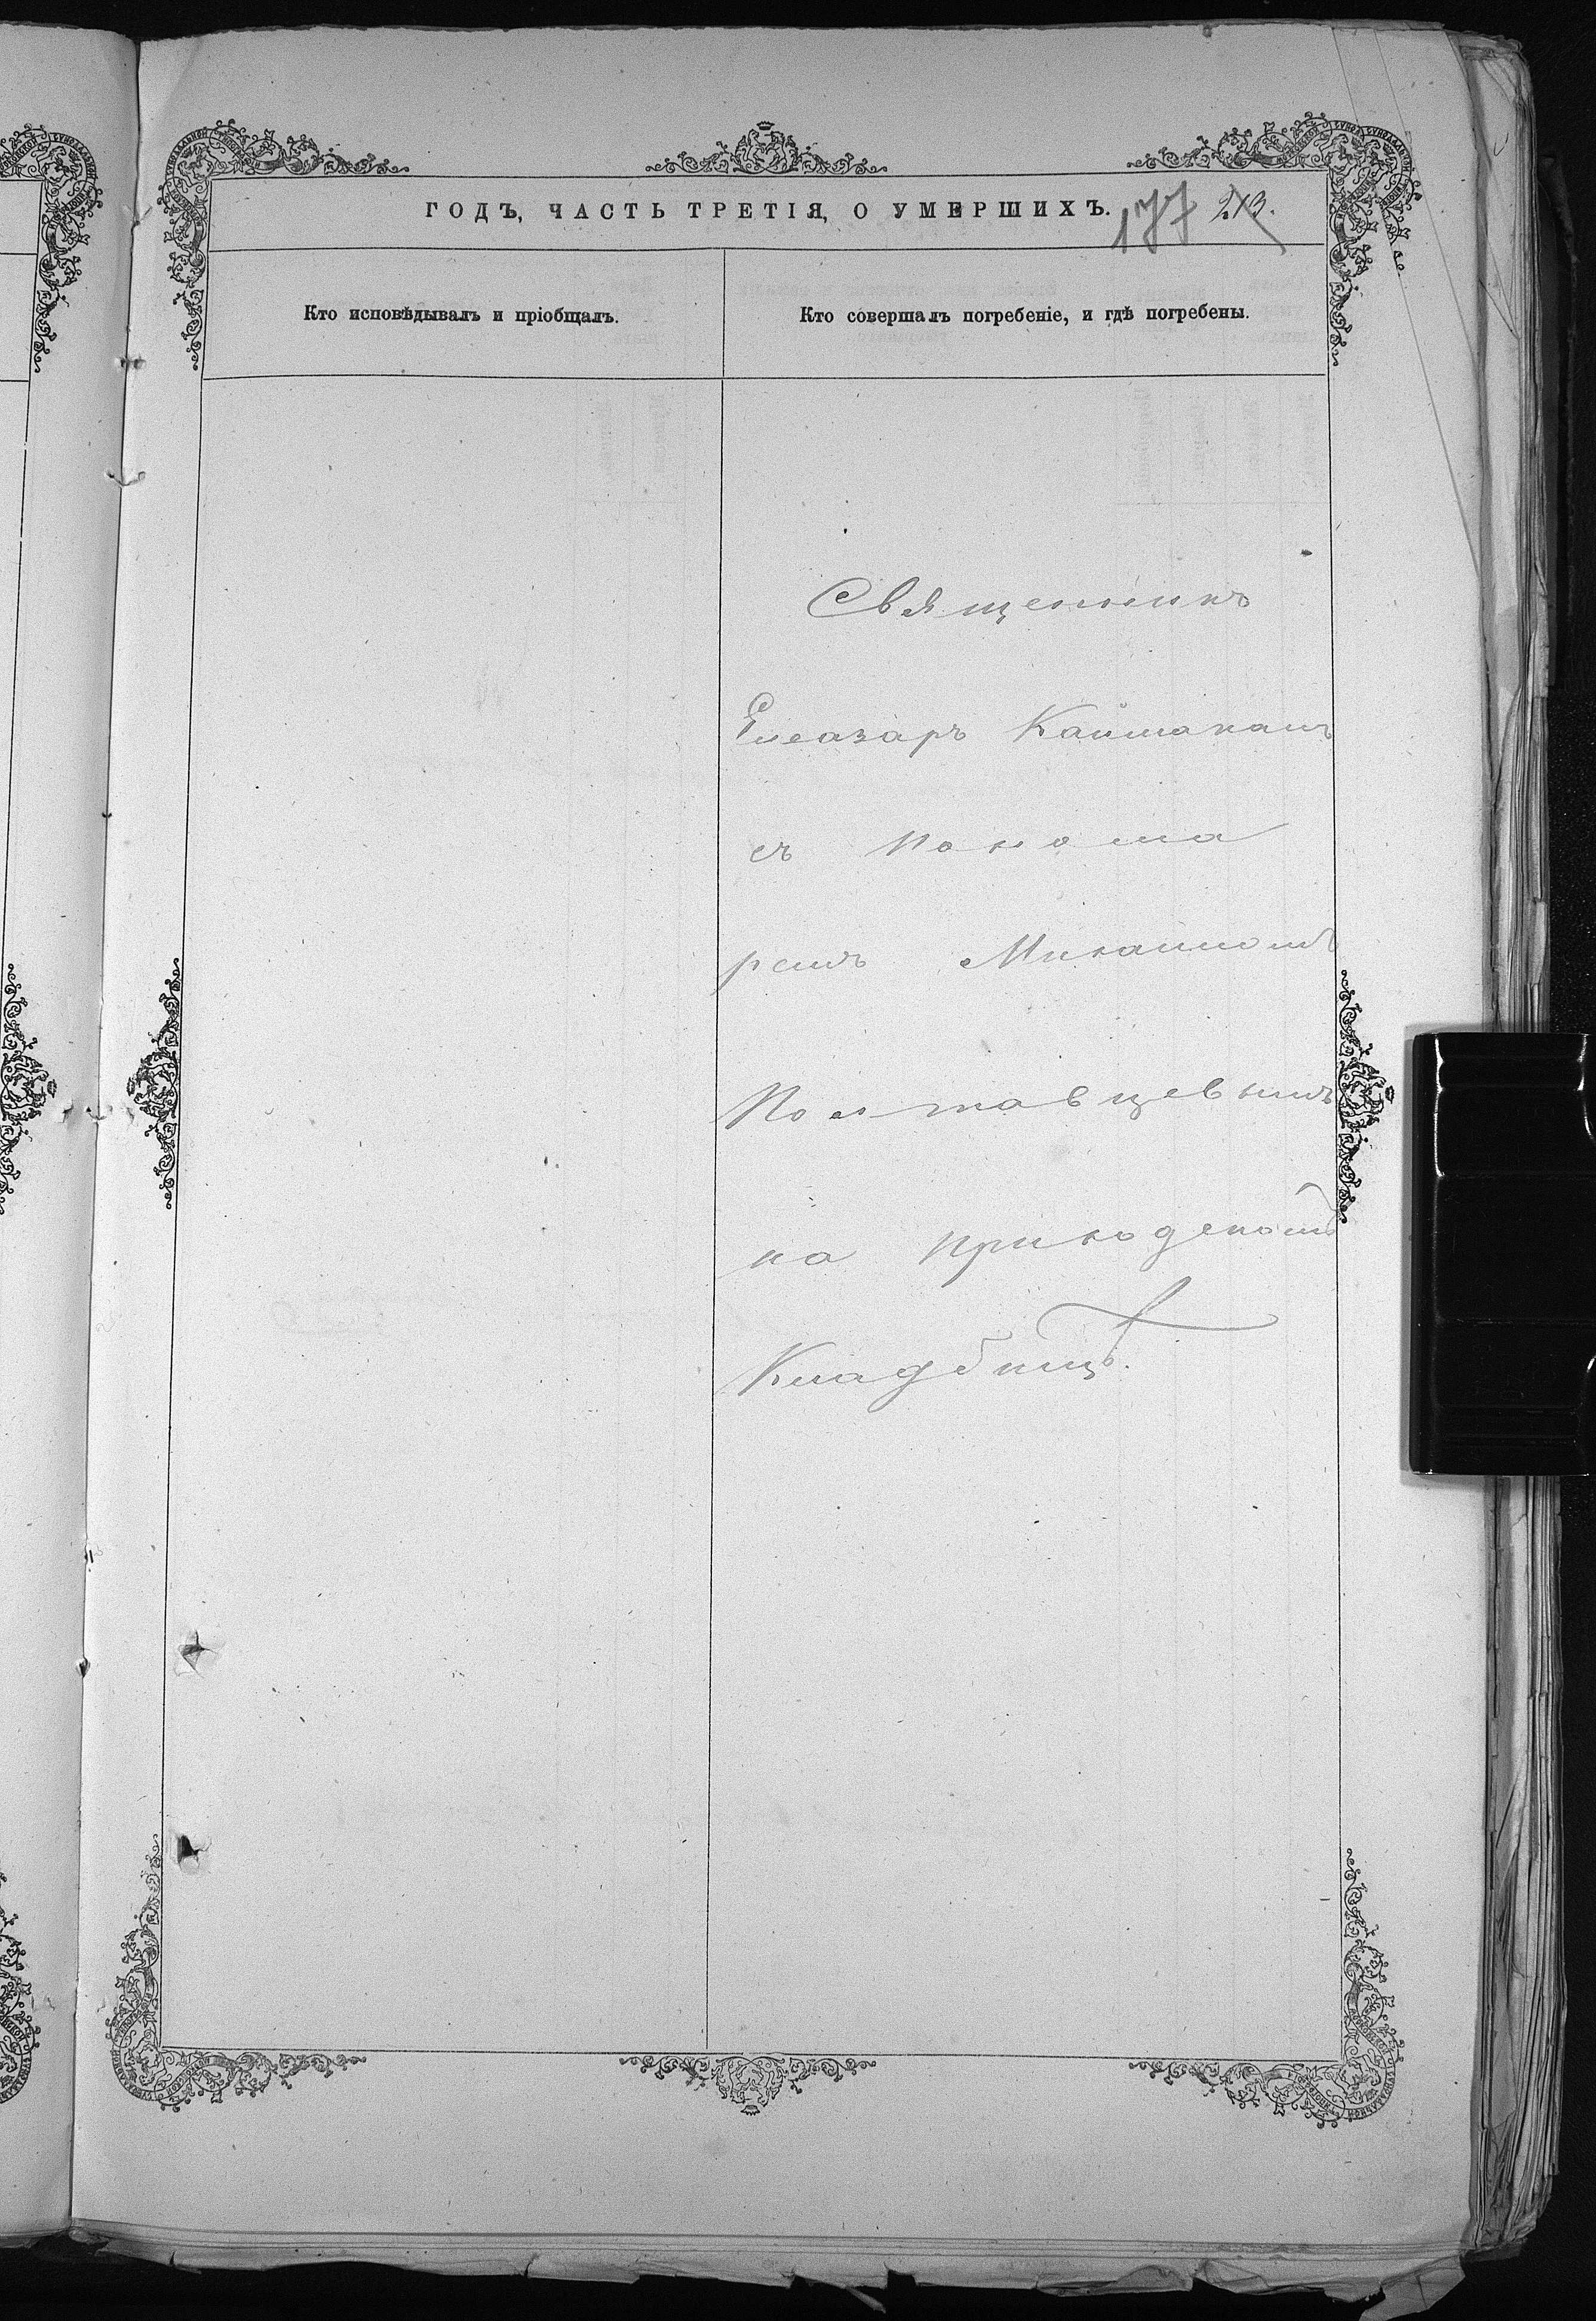 ГОДЪ, ЧАСТЬ ТРЕТІЯ, О УМЕРШИХЪ.
177 213.
Кто исповѣдывалъ и пріобщалъ.
Кто совершалъ погребеніе, и гдѣ погребены.
Священникъ
Елеазаръ Каймаканъ
съ Понома
ремъ Михаиломъ
Полтавцевымъ
на приходскомъ
Кладбищѣ.